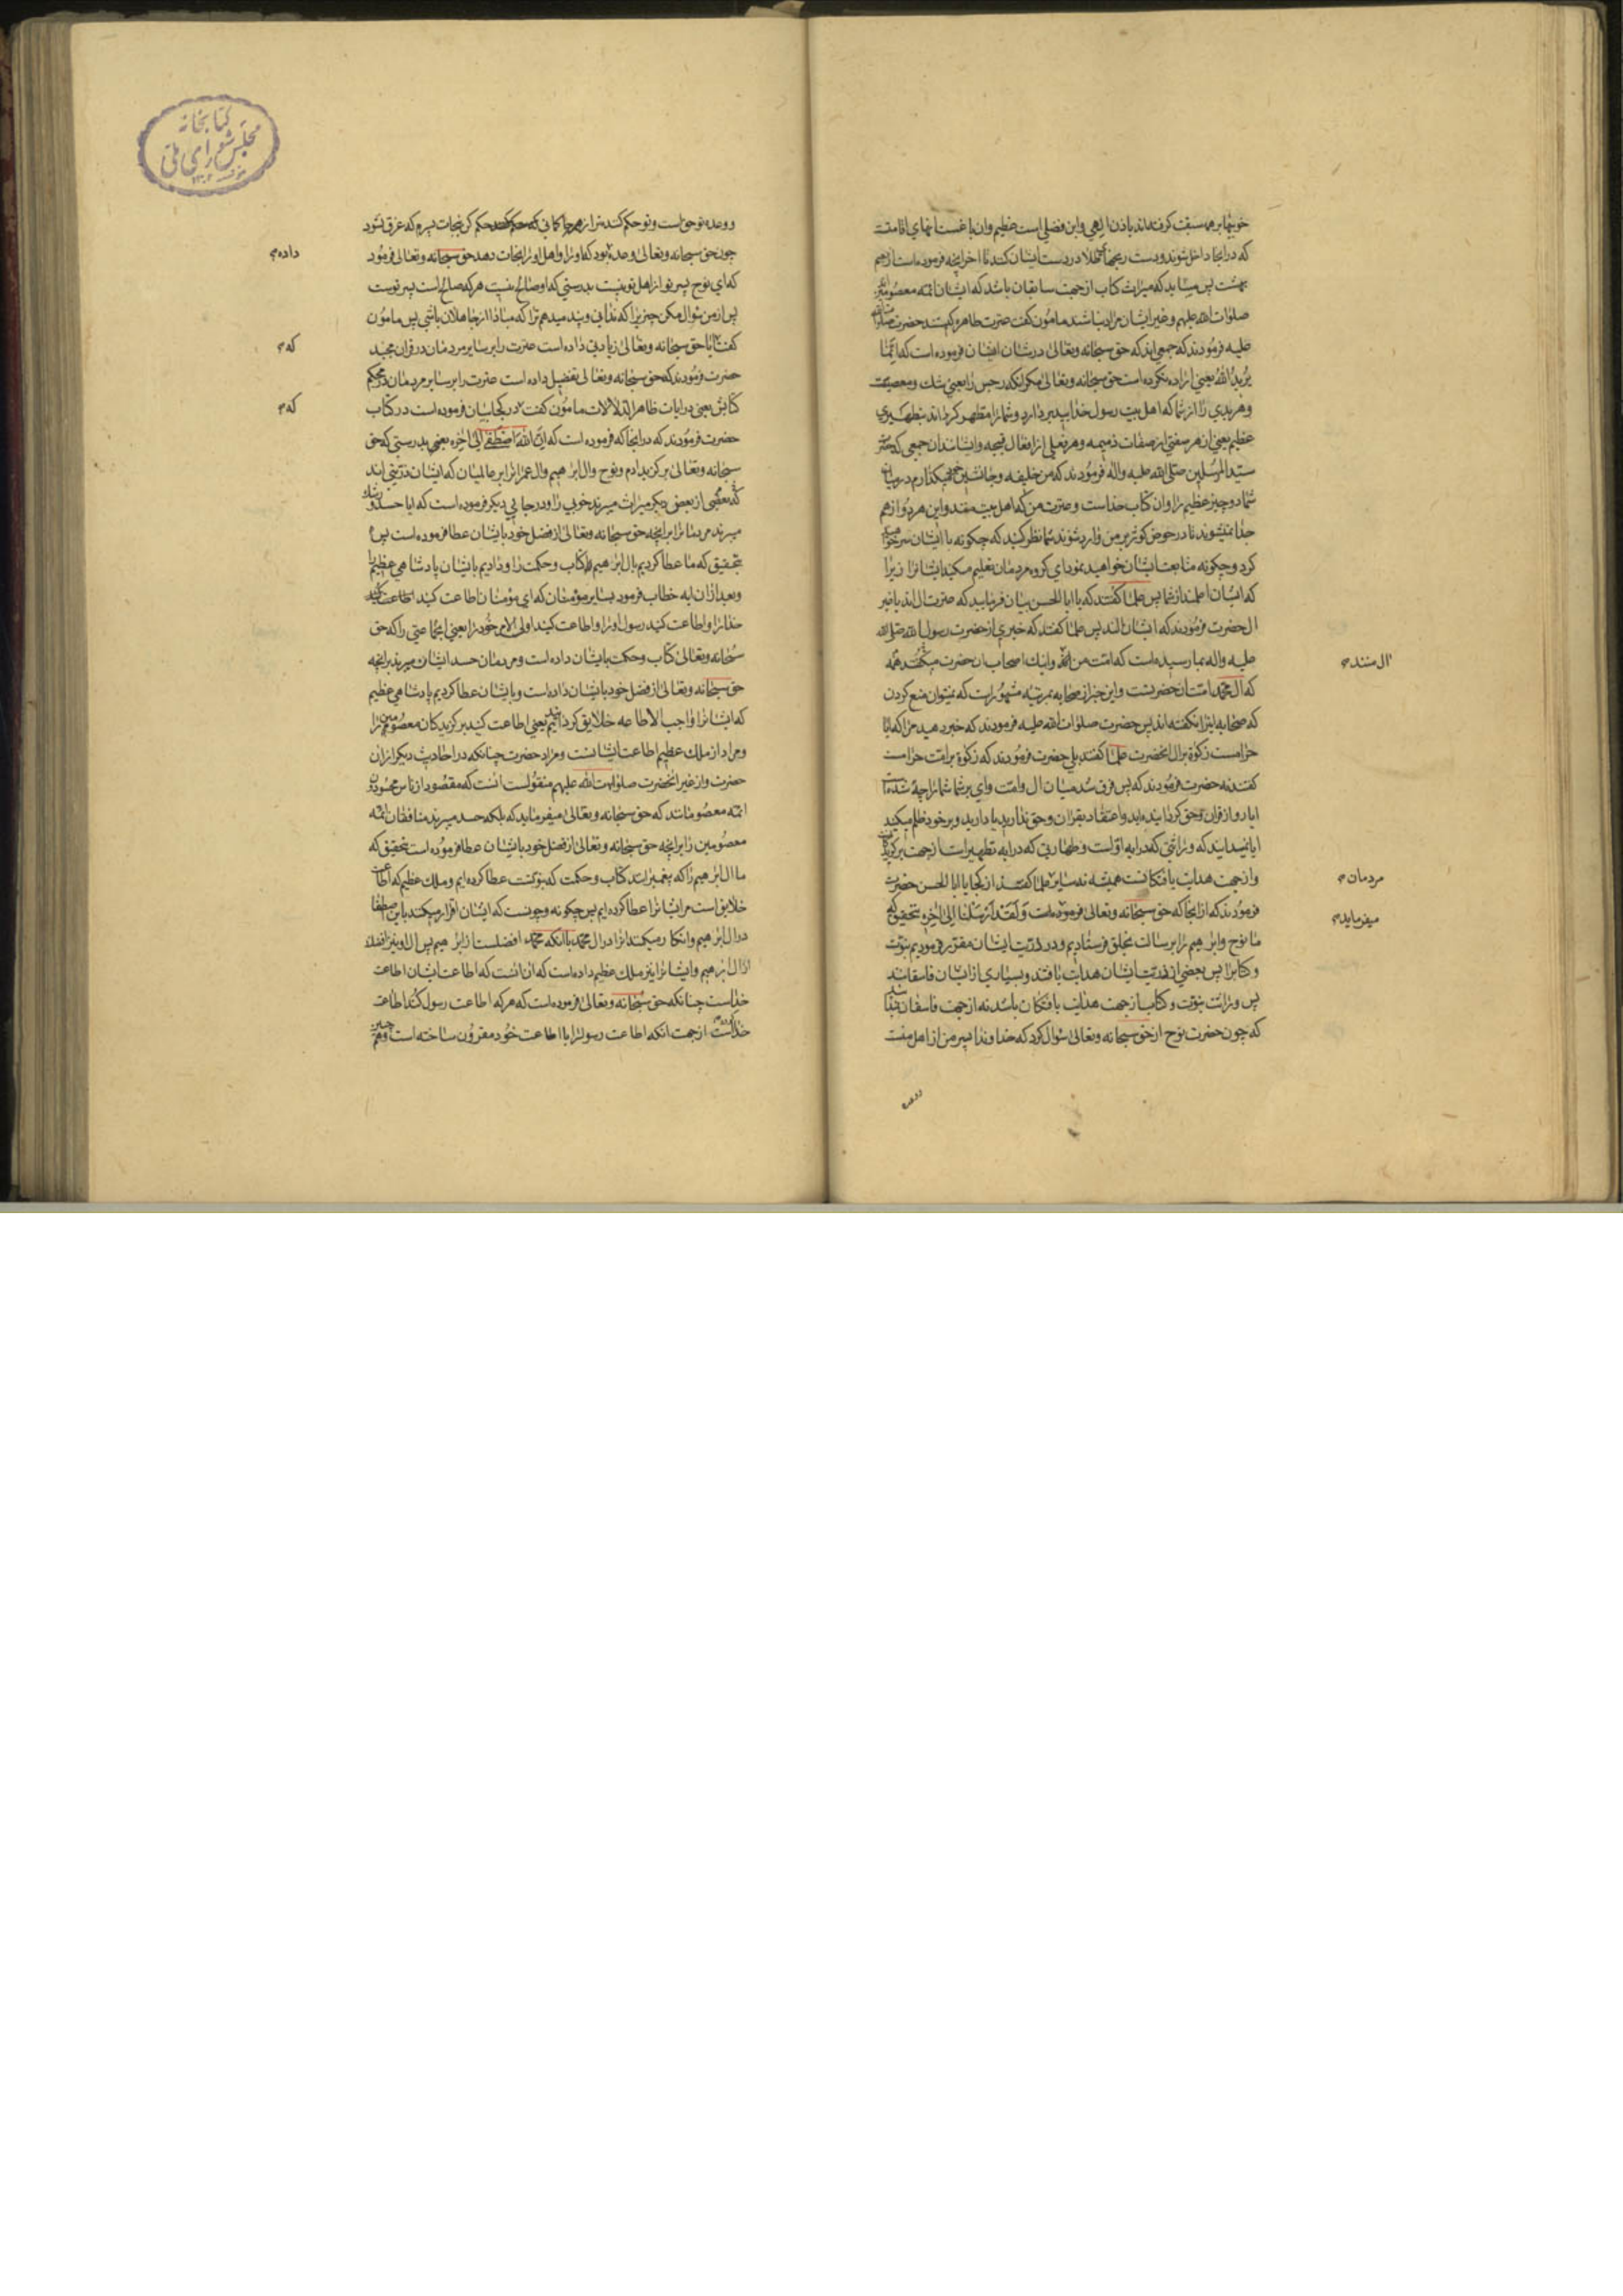 خوبیها بر همه سبقت گرفته‌اند باذن الهی و این فضلی است عظیم و ان باغستانهای اقامتست
که در انجا داخل شوند و دست در ایشان کنند تا اخر انچه فرموده است از نعیم
بهشت پس میباید که میراث کتاب از جهت سابقان باشد که ایشان ائمه معصومین
صلوات الله علیهم و غیر ایشان مراد نباشند مامون گفت عترت طاهره کیستند حضرت صلوات الله
علیه فرمودند که جمعی‌اند که حق سبحانه وتعالی در شان ایشان فرموده است که انما
یرید الله یعنی اراده نکرده است حق سبحانه وتعالی مگر انکه رجس را یعنی شک و معصیت
و هر بدی را از شما که اهل بیت رسول خدایید بردارد و شما را مطهر گرداند تطهیری
عظیم یعنی از هر صفتی از صفات ذمیمه و هر فعلی از افعال قبیحه و ایشانند ان جمعی که حضرت
سید المرسلین صلی الله علیه واله فرمودند که من خلیفه و جانشین میگذارم در میان
شما دو چیز عظیم را و ان کتاب خداست و عترت من که اهل بیت منند و این هر دو از هم
جدا نمیشوند تا در حوض کوثر بر من وارد شوند شما نظر کنید که چگونه با ایشان سر خواهید
کرد و چگونه متابعت ایشان خواهید نمود ای گروه مردمان تعلیم مکنید ایشانرا زیرا
که ایشان اعلمند از شما پس علما گفتند که یا ابا الحسن بیان فرمایید که عترت ال‌اند یا غیر
ال حضرت فرمودند که ایشان الند پس علما گفتند که خبری از حضرت رسول الله صلی الله
علیه واله بما رسیده است که امت من ال منند و اینک اصحاب ان حضرت میگفتند همه
که ال محمد امتان حضرتست و این خبر از صحابه بمرتبه مشهور است که نمیتوان منع کردن
که صحابه اینرا نگفته‌اند پس حضرت صلوات الله علیه فرمودند که خبر دهید مرا که ایا
حرامست زکوة بر ال انحضرت علما گفتند بلی حضرت فرمودند که زکوة بر امت حرامست
گفتند نه حضرت فرمودند که پس فرق شد میان ال و امت وای بر شما شما را چه شده است
ایا رو از قران و حق گردانیده‌اید و اعتقاد بقران و حق ندارید یا دارید و بر خود ظلم میکنید
ایا نمیدانید که وراثتی که در ایه اولست و طهارتی که در ایه تطهیر است از جهت برگزیدگان
و از جهت هدایت یافتگانست همیشه نه سایر مردمان علما گفتند از کجا یا ابا الحسن حضرت
فرمودند که از انجا که حق سبحانه وتعالی فرموده است وَلَقَدْ اَرْسَلْنا الی اخره بتحقیق که
ما نوح و ابرهیم را برسالت بخلق فرستادیم و در ذریت ایشان مقرر فرمودیم نبوت
و کتابرا پس بعضی از ذریت ایشان هدایت یافتند و بسیاری از ایشان فاسقانند
پس وراثت نبوت و کتاب از جهت هدایت یافتگان باشد نه از جهت فاسقان
که چون حضرت نوح از حق سبحانه وتعالی سؤال کرد که خداوندا پسر من از اهل منست
و وعده
ال منند
مردمان
میفرماید
و وعده تو حق است و تو حکم کننده‌تر از همه حاکمانی حکم کن بنجات پسرم که غرق نشود
چون حق سبحانه وتعالی وعده داده بود که او را و اهل او را نجات دهد حق سبحانه وتعالی فرمود
که ای نوح پسر تو از اهل تو نیست بدرستی که او صالح نیست هر که صالح است پسر توست
پس از من سؤال مکن چیزیرا که ندانی و پند میدهم ترا که مبادا از جاهلان باشی پس مامون
گفت ایا حق سبحانه وتعالی زیادتی داده است عترت را بر سایر مردمان در قران مجید
حضرت فرمودند که حق سبحانه وتعالی تفضیل داده است عترت را بر سایر مردمان در محکم
کتابش یعنی در ایات ظاهر الدلالات مامون گفت که در کجا بیان فرموده است در کتاب
حضرت فرمودند که در انجا که فرموده است که اِنَّ اللهَ اصْطَفی الی اخره یعنی بدرستی که حق
سبحانه وتعالی برگزید ادم و نوح و ال ابرهیم و ال عمرانرا بر عالمیان که ایشان ذریتی‌اند
که بعضی از بعضی دیگر میراث میبرند خوبی را و در جایی دیگر فرموده است که ایا حسد و رشک
میبرند مردمانرا بر انچه حق سبحانه وتعالی از فضل خود بایشان عطا فرموده است پس
بتحقیق که ما عطا کردیم بال ابرهیم کتاب و حکمت را و دادیم بایشان پادشاهی عظیم را
و بعد از ان ایه خطاب فرمود بسایر مؤمنان که ای مؤمنان اطاعت کنید
خدا را و اطاعت کنید رسول او را و اطاعت کنید اولی الامر خود را یعنی ان جماعتی را که حق
سبحانه وتعالی کتاب و حکمت بایشان داده است و مردمان حسد ایشان میبرند بر انچه
حق سبحانه وتعالی از فضل خود بایشان داده است و بایشان عطا کردیم پادشاهی عظیم
که ایشانرا واجب الاطاعه خلایق گردانیدیم یعنی اطاعت کنید برگزیدگان معصومین را
و مراد از ملک عظیم اطاعت ایشانست و مراد حضرت چنانکه در احادیث دیگر از ان
حضرت و از غیر انحضرت صلوات الله علیهم منقولست انست که مقصود از ناس محسودین
ائمه معصومانند که حق سبحانه وتعالی میفرماید که بلکه حسد میبرند منافقان ائمه
معصومین را بر انچه حق سبحانه وتعالی از فضل خود بایشان عطا فرموده است بتحقیق که
ما ال ابرهیم را که پیغمبرانند کتاب و حکمت که نبوتست عطا کرده‌ایم و ملک عظیم که اطاعت
خلایق است مر ایشانرا عطا کرده‌ایم پس چگونه و چونست که ایشان اقرار میکنند باین اصطفا
در ال ابرهیم و انکار میکنند انرا در ال محمد با انکه محمد افضلست از ابرهیم پس ال او نیز افضلند
از ال ابرهیم و ایشانرا نیز ملک عظیم داده است که ان انست که اطاعت ایشان اطاعت
خداست چنانکه حق سبحانه وتعالی فرموده است که هر که اطاعت رسول کند اطاعت
خداست از جهت انکه اطاعت رسولرا با اطاعت خود مقرون ساخته است و همچنین
داده
که
که
کتابخانه
مجلس شورای ملی